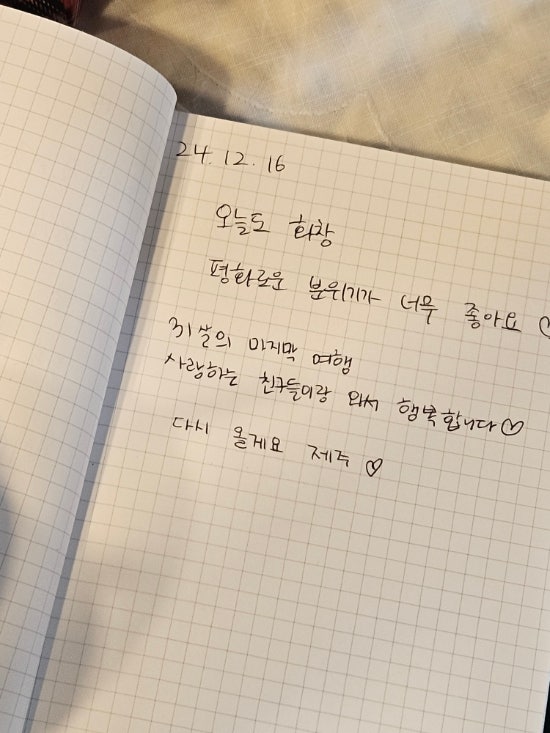 24.12.16
오늘도 화창
평화로운 분위기가 너무 좋아요 ♡
31살의 마지막 여행
사랑하는 친구들이랑 와서 행복합니다♡
다시 올게요 제주 ♡